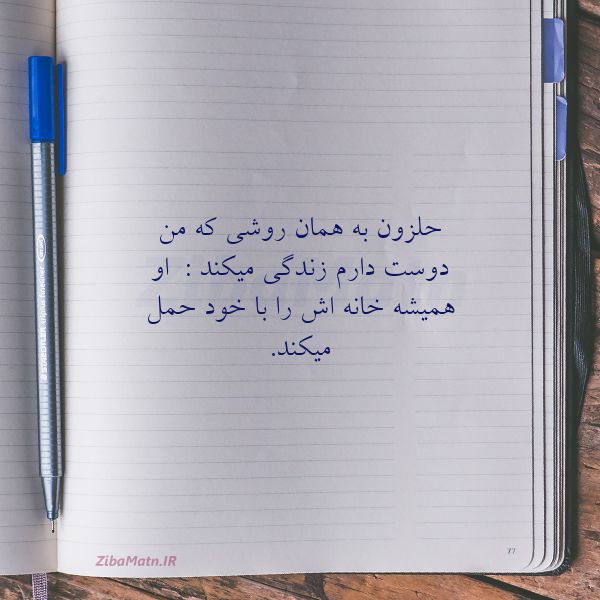 حلزون به همان روشی که من
دوست دارم زندگی میکند : او
همیشه خانه اش را با خود حمل
میکند.
77
ZibaMatn.IR